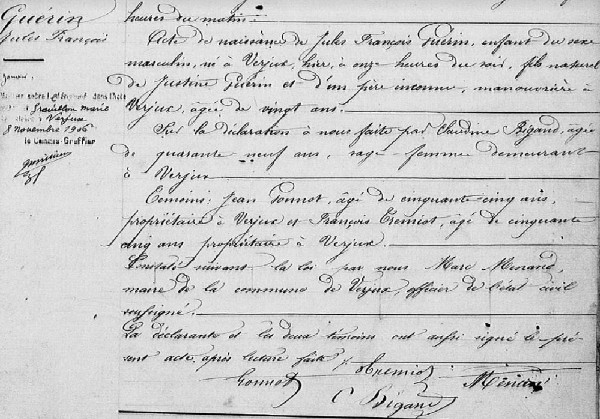 Guérin
Jules François
heures du matin
Acte de naissance de Jules François Guérin, enfant du sexe
masculin, né à Verjux, hier, à onze heures du soir, fils naturel
de Justine Guérin et d'un père inconnu, manouvrière à
Verjux, âgée de vingt ans.
Sur la déclaration à nous faite par Claudine Bigand, âgée
de quarante neuf ans, sage-femme demeurant
à Verjux
Témoins, Jean Gonnot, âgé de cinquante cinq ans,
propriétaire à Verjux et François Tremiot, âgé de cinquante
cinq ans propriétaire à Verjux.
Constaté suivant la loi par nous Marc Menand,
maire de la commune de Verjux, officier de l'état civil
soussigné.
La déclarante et les deux témoins ont aussi signé le pré
sent acte après lecture faite
Tremiot
Menand
Gonnot
C Bigand
marié
à Verjux
8 novembre 1906
le Commis-Greffier